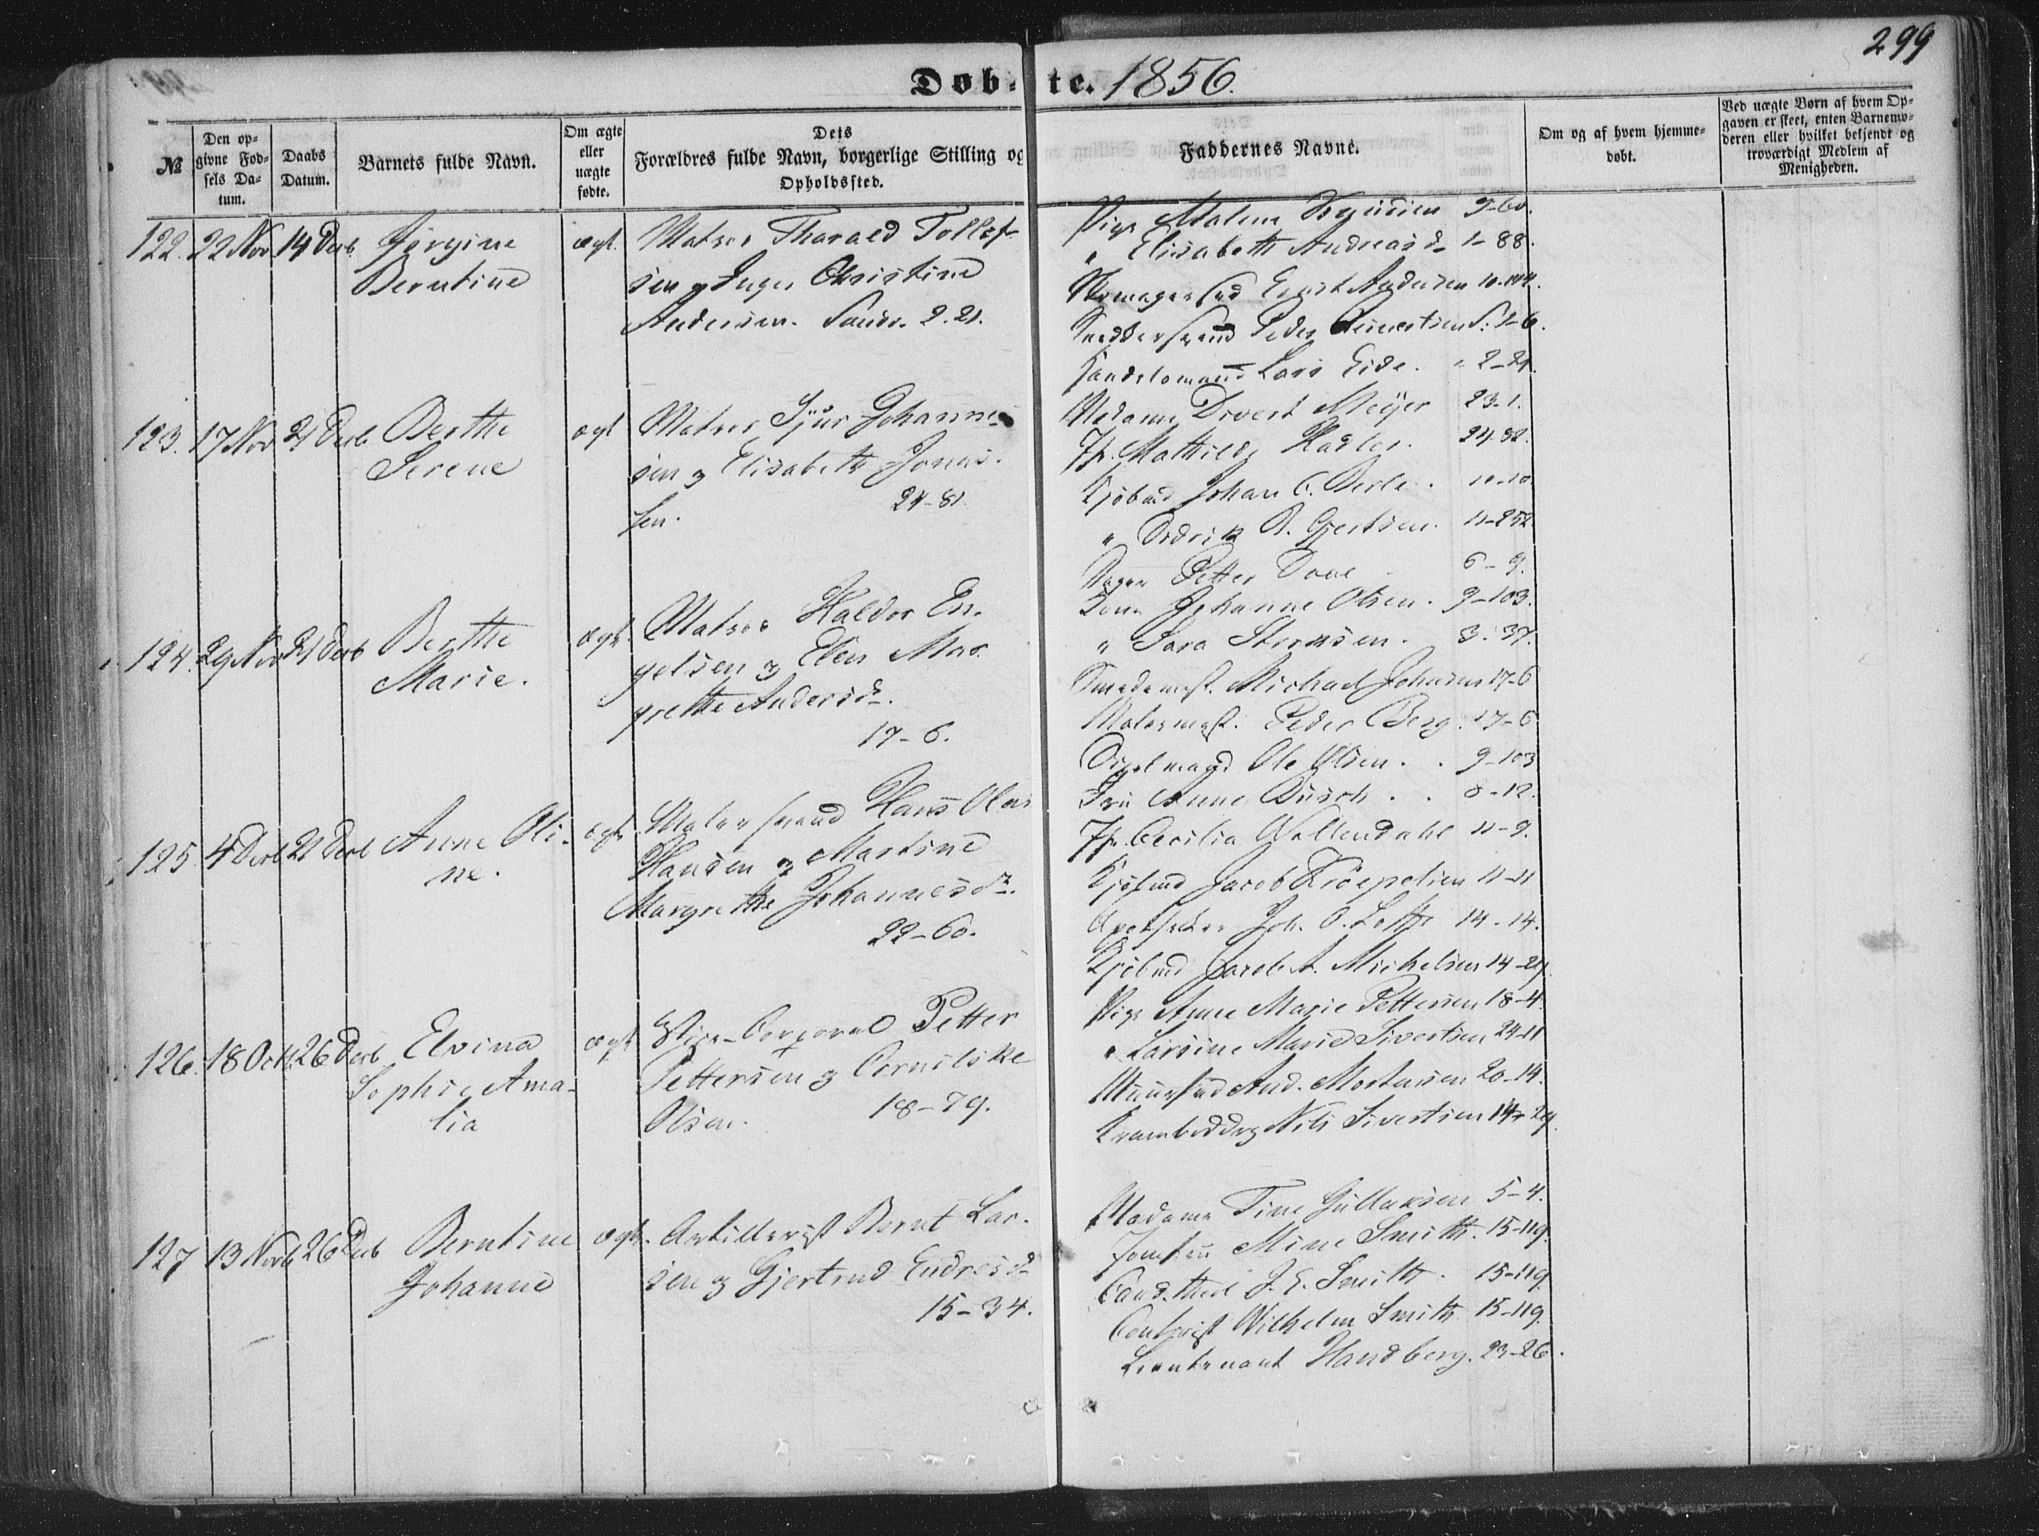 299
Døb-te. 1856.
№
Den opgivne Fødsels Datum.
Daabs Datum.
Barnets fulde Navn.
Om ægte eller uægte fødte.
Dets
Forældres fulde Navn, borgerlige Stilling og
Opholdssted.
Faddernes Navne.
Om og af hvem hjemmedøbt.
Ved uægte Børn af hvem Op-
gaven er skeet, enten Barnemo-
deren eller hvilket bekjendt og
troværdigt Medlem af
Menigheden.
122. 22 Nov 14 Decb. Jørgine ægt. Matros Tharald Tollef-
Berntine sen og Inger Christine
Andersen. Sandv. 2.21.
Pige Malene 9-60.
" Elisabeth Andreasd. 1-88.
Skomagersvd Ernst Andersen 10.144.
Snedkersvend Peder Sivertsen S. 1-6.
Handelsmand Lars Eide. " 2-21.
123. 17 Nov 21 Decb Berthe ægt Matros Sjur Johanne-
Serene sen og Elisabeth Jonas-
sen. 24-81.
Madame Divert Meijer 23-1.
Jf. Mathilde 24.82.
Kjøbmd Johan C. 10-10.
" Didrik R. Gjertsen. 11-252
Petter 6-9.
124. 29 Nov 21 Decb Berthe ægt. Matros Haldor En-
Marie. gelsen og Elen Mar-
grethe Andersd.
17-6.
Kone Johanne Olsen. 9-103.
" Sara 3.37.
Smedemst. Michael Johnsen 17-6
Malermst. Peder Berg. 17-6
Ole Olsen. . 9-103
125. 4 Decb 21 Decb Anne Oli- ægt Malersvend Hans Olai
ne. Hansen og Martine
Margrethe Johannesdr.
22-60.
Fru Anne Busch . . 8-12.
Jfr. Cecilia Wallendahl 11-9.
Kjøbmd Jacob Kröepelien 11-11
Apotheker Joh. 14-14.
Kjøbmd Jacob A. Michelsen 14-29
126. 18 Octb. 26 Decb Elvina ægt Petter
Sophie Ama- Pettersen og Cornelske
lia Olsen. 18-79.
Pige Anne Marie Pettersen 18-4.
" Larsine Marie Sivertsen 24-11
Muursvd And. Mortensen 20-14.
Kramboddrg Nils Sivertsen 14-29.
127 13 Novb 26 Decb Berntine ægt. Artillerist Bernt Lar-
Johanne sen og Gjertrud Endresd.
15-34.
Madame Tine Gullaksen 5-4.
Jomfru Mine Smith. 15-119.
Cand. theol J. E. Smith. 15-119.
Contorist Wilhelm Smith 15-119.
Lieutenant Handberg. 23-26.